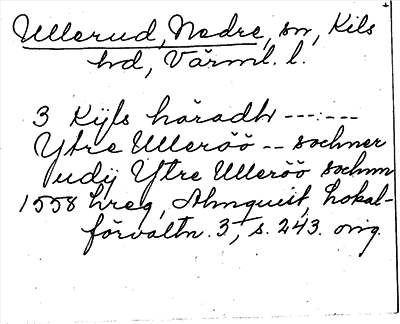 Ullerud, Nedre, sn, Kils
hd, Värml. l.
3 Kijls häradh ------
Ytre Ulleröö -- sochner
udij Ytre Ulleröö sochnn
1558 hreg, Almquist, Lokal-
förvaltn. 3, s. 243. orig.